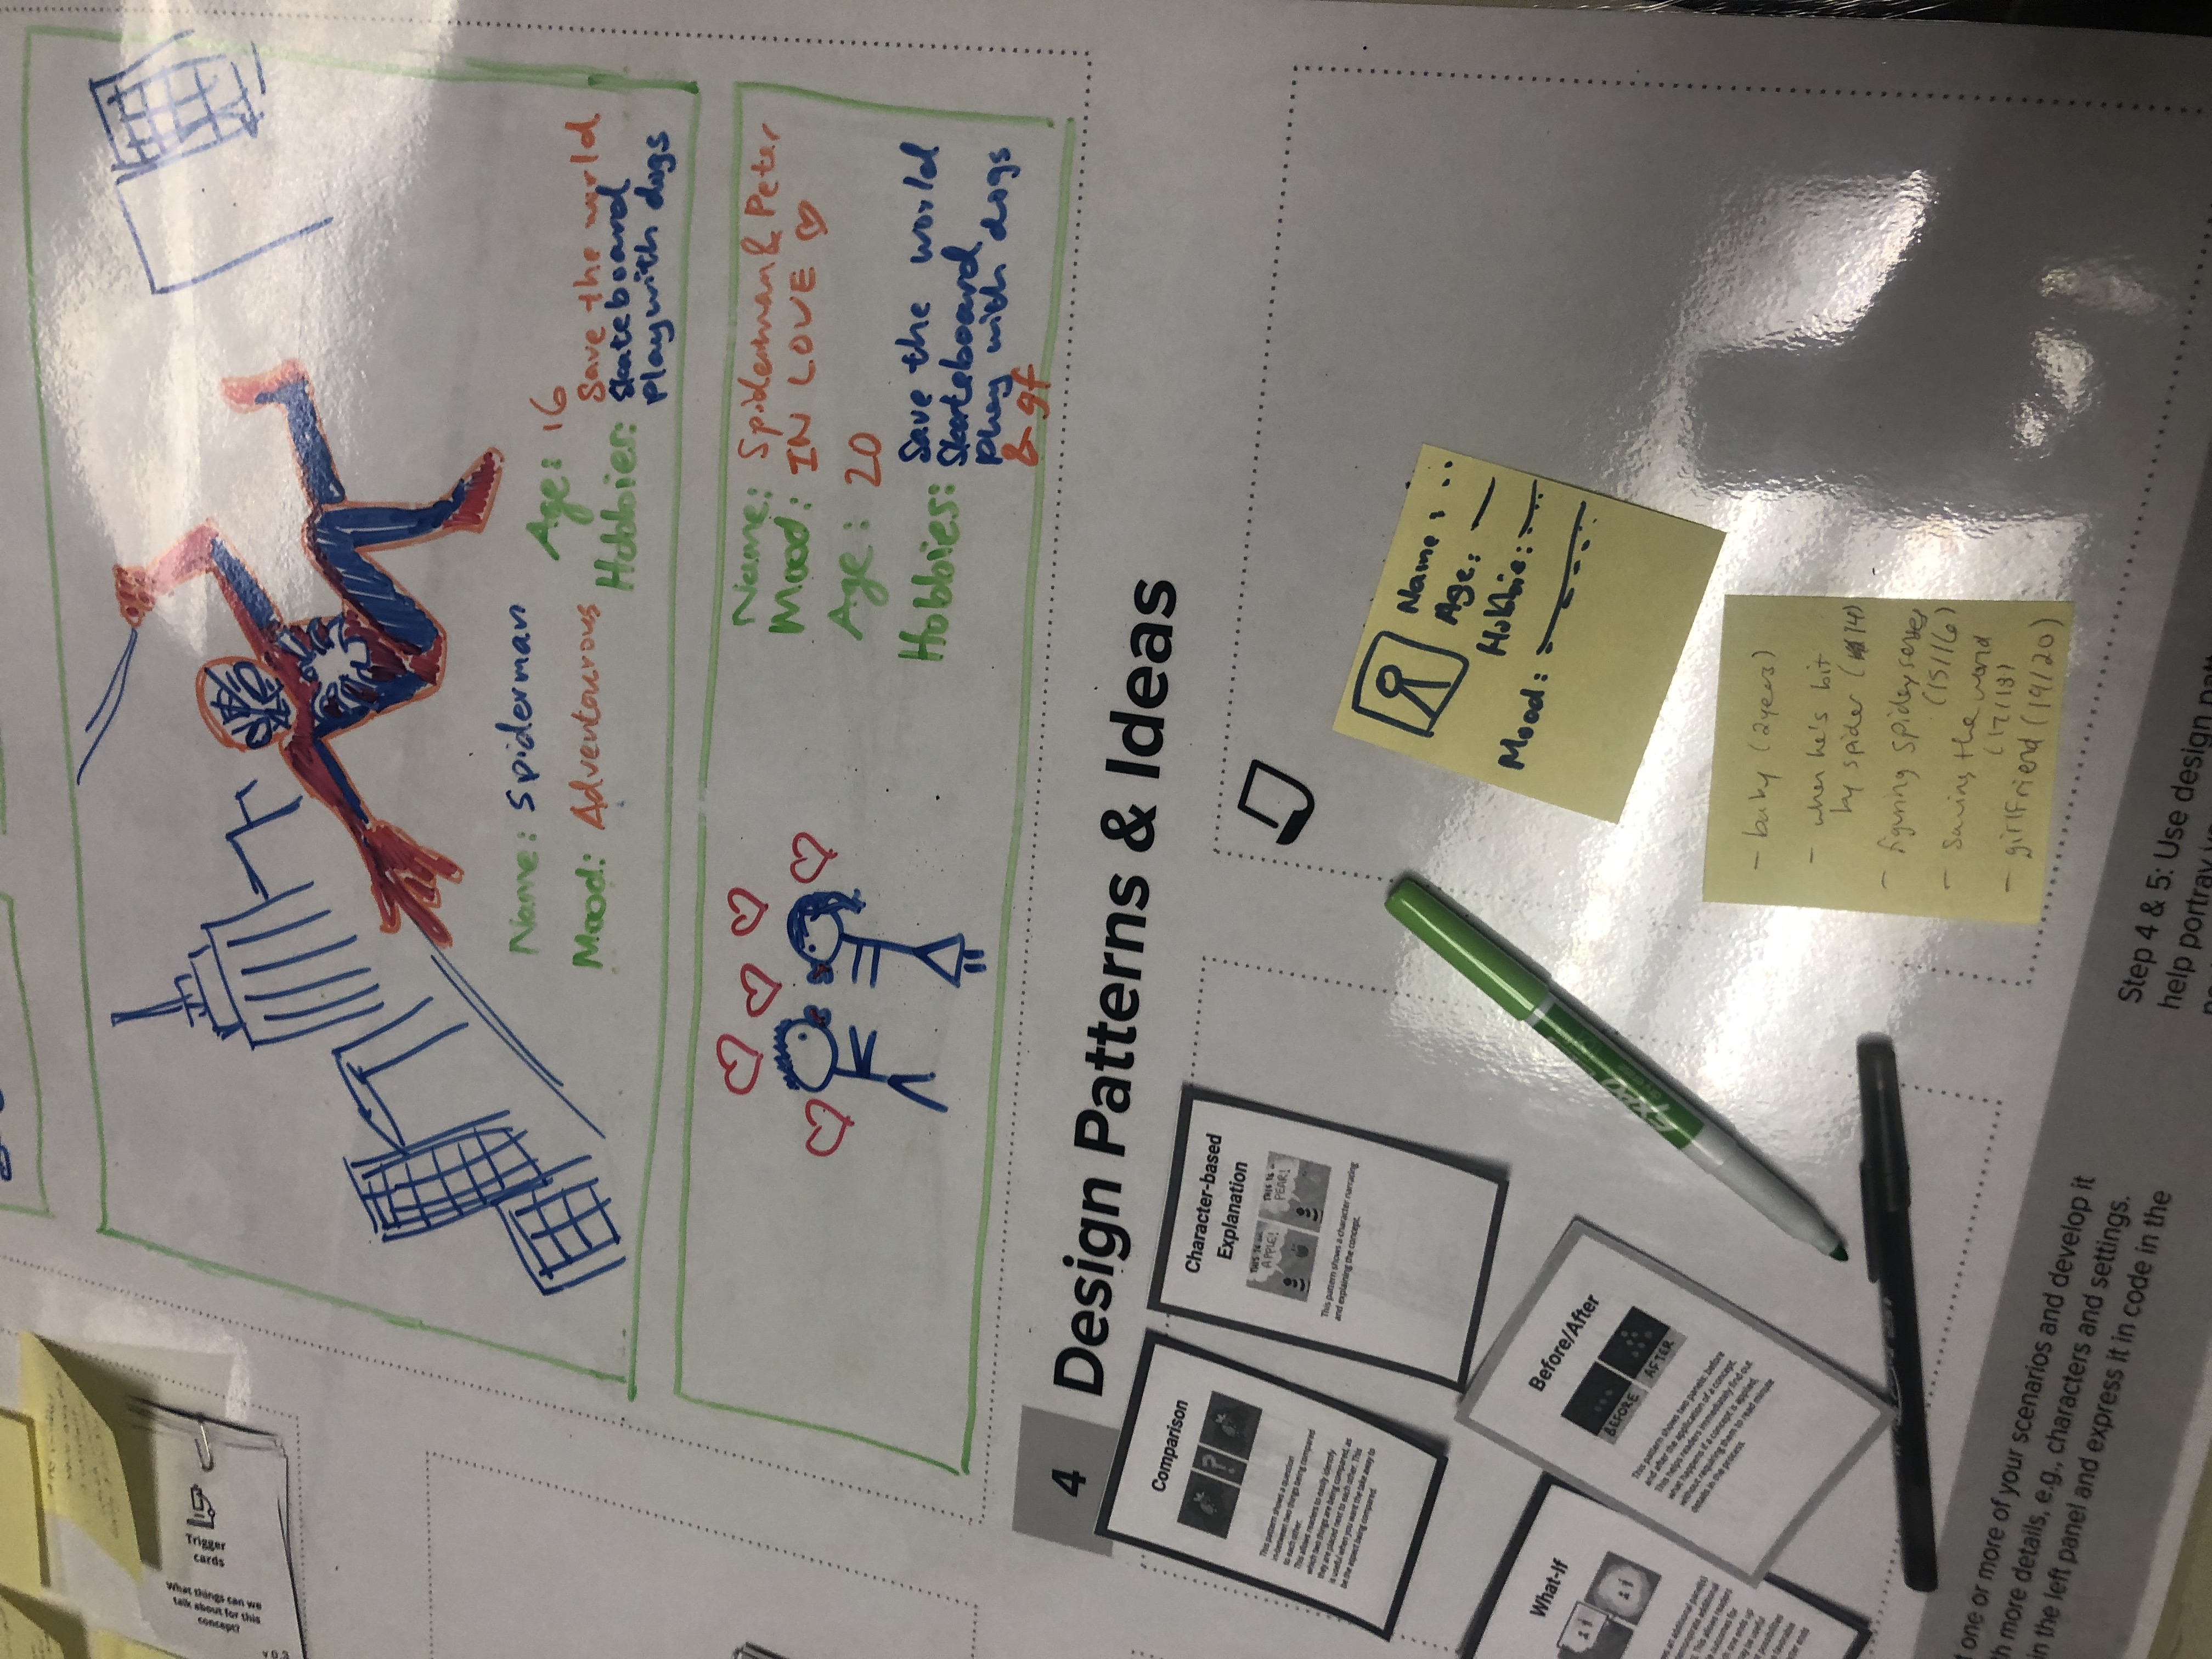 Trigger
cards
What things can we
talk about for this
concept?
Name: Spiderman
Age: 16
Mood: Adventourous
Hobbies: Save the world
Skateboard
Play with dogs
Name: Spiderman & Peter
Mood: IN LOVE
Age: 20
Hobbies: Save the world
Skateboard
Play with dogs
& gf
4
Design Patterns & Ideas
Comparison
?
This pattern shows a question
in-between two things being compared
to each other.
This allows readers to easily identify
which two things are being compared, as
they are placed next to each other. This
is useful when you want the take away to
be the aspect being compared.
Character-based
Explanation
THIS IS
APPLE!
THIS IS
PEAR!
This pattern shows a character narrating
and explaining the concept.
What-If
an additional panel(s)
additional
This allows readers
outcomes for
one ends up
may be useful
possibilities
favorable
ends
Before/After
BEFORE
AFTER
This pattern shows two panels: before
and after the application of a concept.
This helps readers immediately find out
what happens if a concept is applied,
without requiring them to read minute
details in the process.
EXPO
Name: ..
Age:
Hobbie:
Mood:
- baby (2years)
- when he's bit
by spider (14)
- figuring spidey senses
(15/16)
- Saving the world
(17/18)
- girlfriend (19/20)
one or more of your scenarios and develop it
more details, e.g., characters and settings.
in the left panel and express it in code in the
Step 4 & 5: Use design
help portray